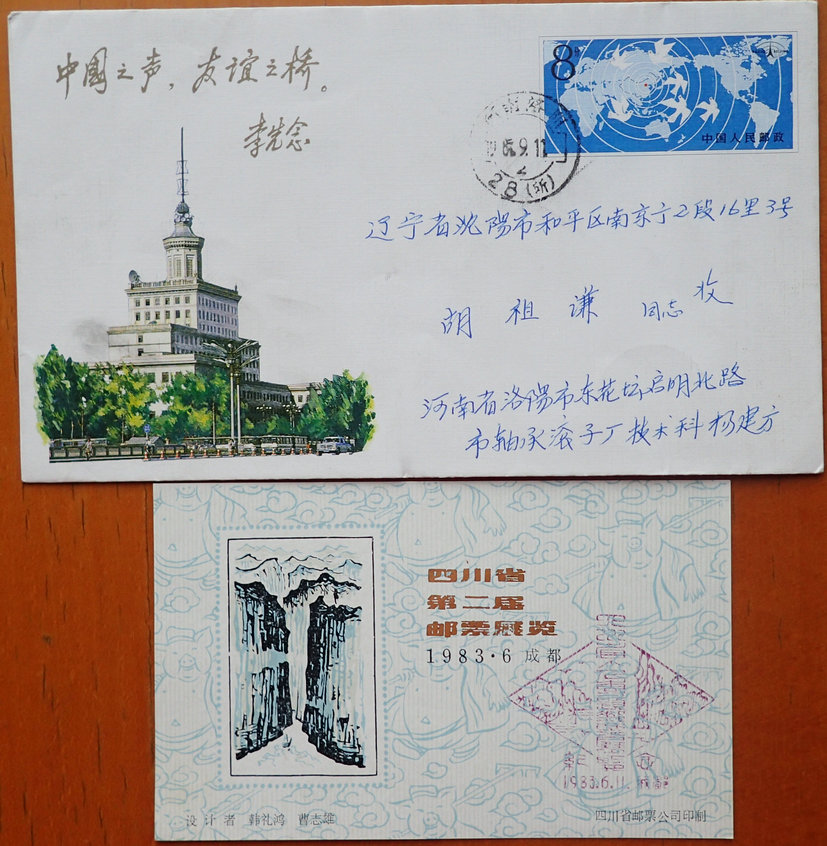 中國之声，友谊之桥。
李先念
8分
中国人民邮政
9.11
28(所)
辽宁省沈陽市和平区南东宁2段16里3号
胡祖谦 同志 收
河南省洛陽市东花坛启明北路
市轴承滚子厂技术科杨建方
四川省
第二届
邮票展览
1983·6 成都
1983.6.11. 成都
设计者 韩礼鸿 曹志雄
四川省邮票公司印制